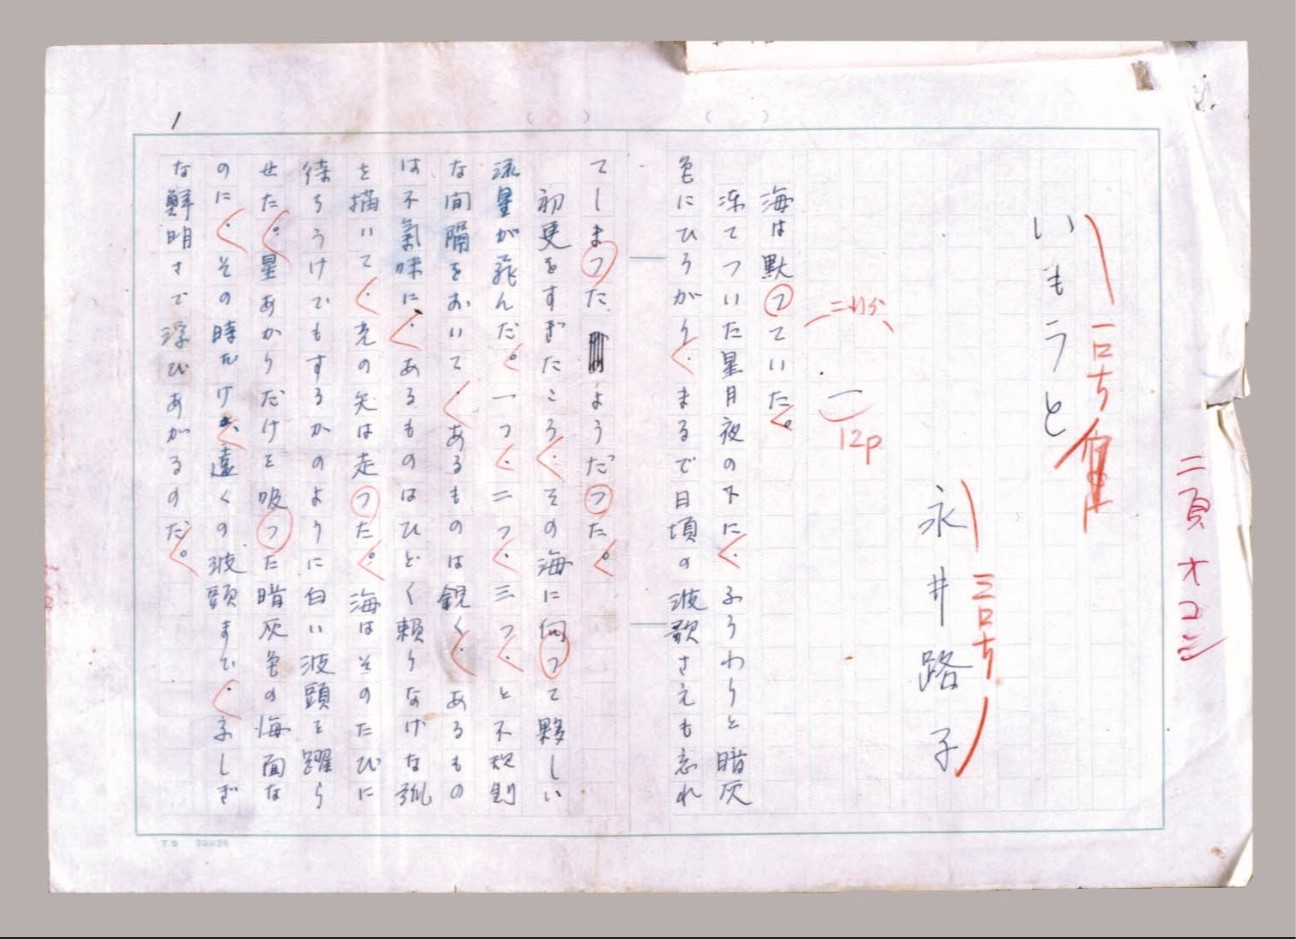 二頁オコシ
一号
いもうと
三号
永井路子
二行分
一
12p
海は黙っていた。
凍てついた星月夜の下に、ふうわりと暗灰
色にひろがり、まるで日頃の波歌さえも忘れ
てしまったようだった。
初更をすぎたころ、その海に向って夥しい
流星が飛んだ。一つ、二つ、三つ、と不規則
な間隔をおいて、あるものは鋭く、あるもの
は不氣味に、あるものはひどく頼りなげな弧
を描いて、光の矢は走った。海はそのたびに
待ちうけでもするかのように白い波頭を躍ら
せた。星あかりだけを吸った暗灰色の海面な
のに、その時だけは、遠くの波頭まで、ふしぎ
な鮮明さで浮びあがるのだ。
1